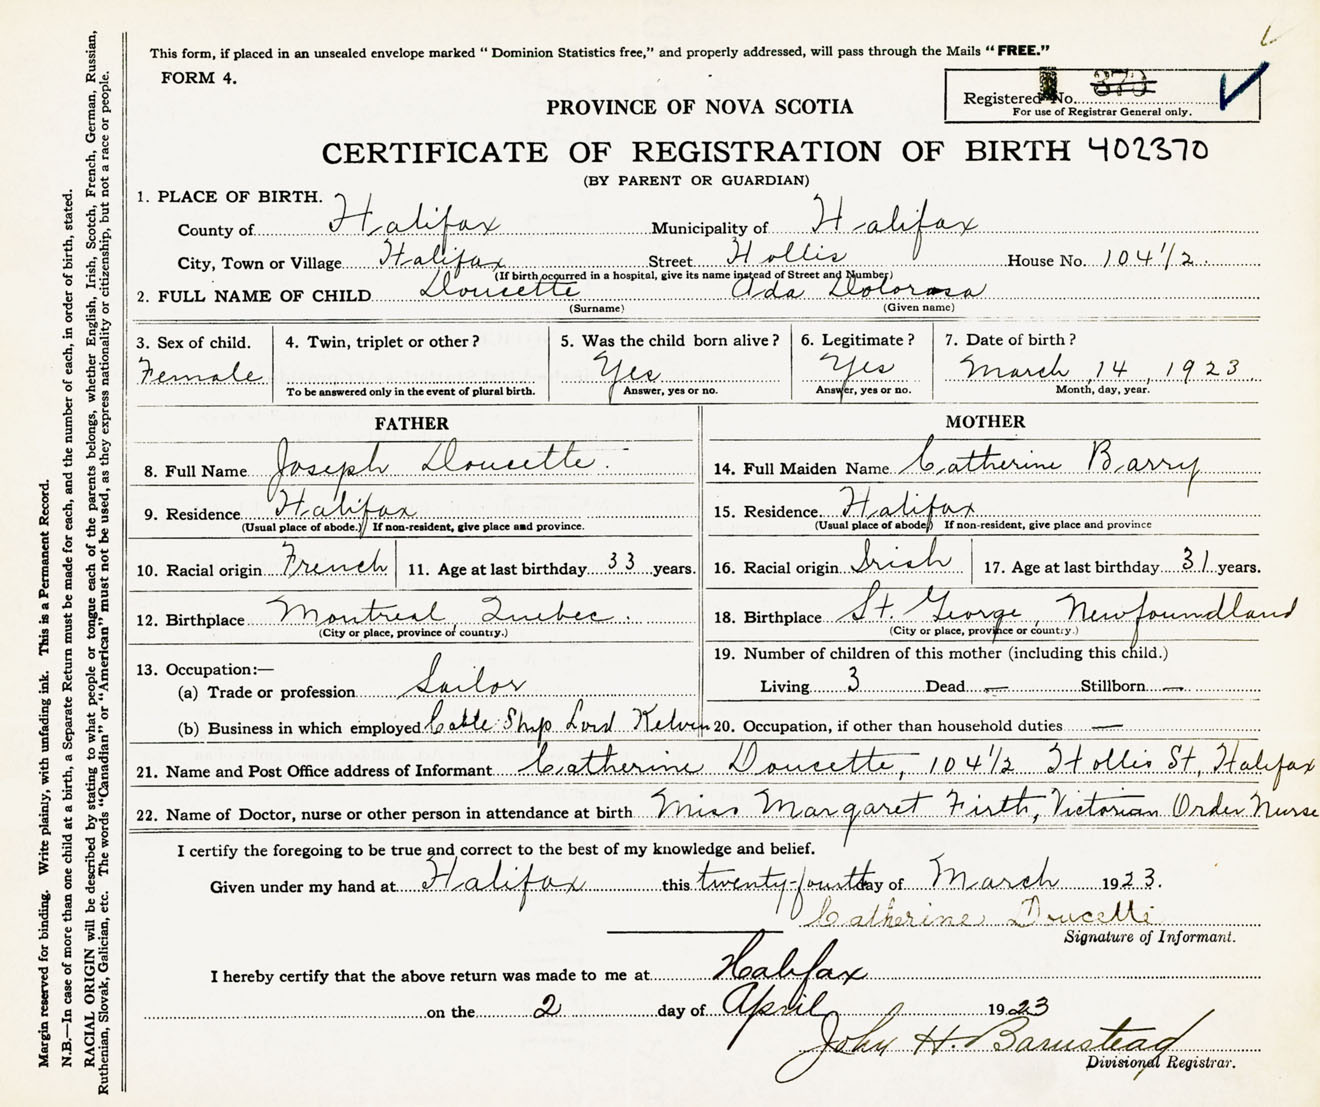 This form, if placed in an unsealed envelope marked “ Dominion Statistics free,” and properly addressed, will pass through the Mails “ FREE.”
FORM 4.
Registered No. 370
For use of Registrar General only.
PROVINCE OF NOVA SCOTIA
CERTIFICATE OF REGISTRATION OF BIRTH 402370
(BY PARENT OR GUARDIAN)
1. PLACE OF BIRTH.
County of Halifax Municipality of Halifax
City, Town or Village Halifax Street Hollis House No. 104 1/2
(If birth occurred in a hospital, give its name instead of Street and Number)
2. FULL NAME OF CHILD Doucette Ada Dolorosa
(Surname) (Given name)
3. Sex of child. 4. Twin, triplet or other? 5. Was the child born alive? 6. Legitimate? 7. Date of birth?
Female Yes Yes March 14, 1923
To be answered only in the event of plural birth. Answer, yes or no. Answer, yes or no. Month, day, year.
FATHER MOTHER
8. Full Name Joseph Doucette. 14. Full Maiden Name Catherine Barry
9. Residence Halifax 15. Residence. Halifax
(Usual place of abode.) If non-resident, give place and province. (Usual place of abode) If non-resident, give place and province
10. Racial origin French 11. Age at last birthday 33 years. 16. Racial origin Irish 17. Age at last birthday 31 years.
12. Birthplace Montreal, Quebec. 18. Birthplace St. George, Newfoundland
(City or place, province or country.) (City or place, province or country.)
19. Number of children of this mother (including this child.)
13. Occupation:—
(a) Trade or profession Sailor Living 3 Dead — Stillborn —
(b) Business in which employed Cable Ship Lord Kelvin 20. Occupation, if other than household duties —
21. Name and Post Office address of Informant Catherine Doucette, 104 1/2 Hollis St, Halifax
22. Name of Doctor, nurse or other person in attendance at birth Miss Margaret Firth, Victorian Order Nurse
I certify the foregoing to be true and correct to the best of my knowledge and belief.
Given under my hand at Halifax this twenty-fourth day of March 1923.
Catherine Doucette
Signature of Informant.
I hereby certify that the above return was made to me at Halifax
on the 2 day of April 1923
John H. Barnstead
Divisional Registrar.
Margin reserved for binding. Write plainly, with unfading ink. This is a Permanent Record.
N.B.—In case of more than one child at a birth, a Separate Return must be made for each, and the number of each, in order of birth, stated.
RACIAL ORIGIN will be described by stating to what people or tongue each of the parents belongs, whether English, Irish, Scotch, French, German, Russian,
Ruthenian, Slovak, Galician, etc. The words “Canadian” or “American” must not be used, as they express nationality or citizenship, but not a race or people.